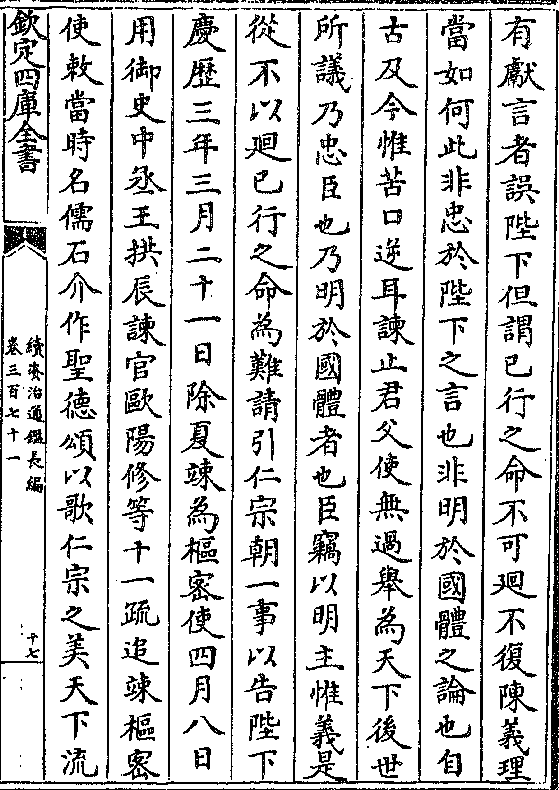 有獻言者誤陛下但謂已行之命不可廻不復陳義理
當如何此非忠於陛下之言也非明於國體之論也自
古及今惟苦口逆耳諫止君父使無過舉為天下後世
所議乃忠臣也乃明於國體者也臣竊以明主惟義是
從不以廻已行之命為難請引仁宗朝一事以告陛下
慶歷三年三月二十一日除夏竦為樞密使四月八日
用御史中丞王拱辰諫官歐陽修等十一疏追竦樞密
使敕當時名儒石介作聖德頌以歌仁宗之美天下流
欽定四庫全書
續資治通鑑長編
卷三百七十一
十七